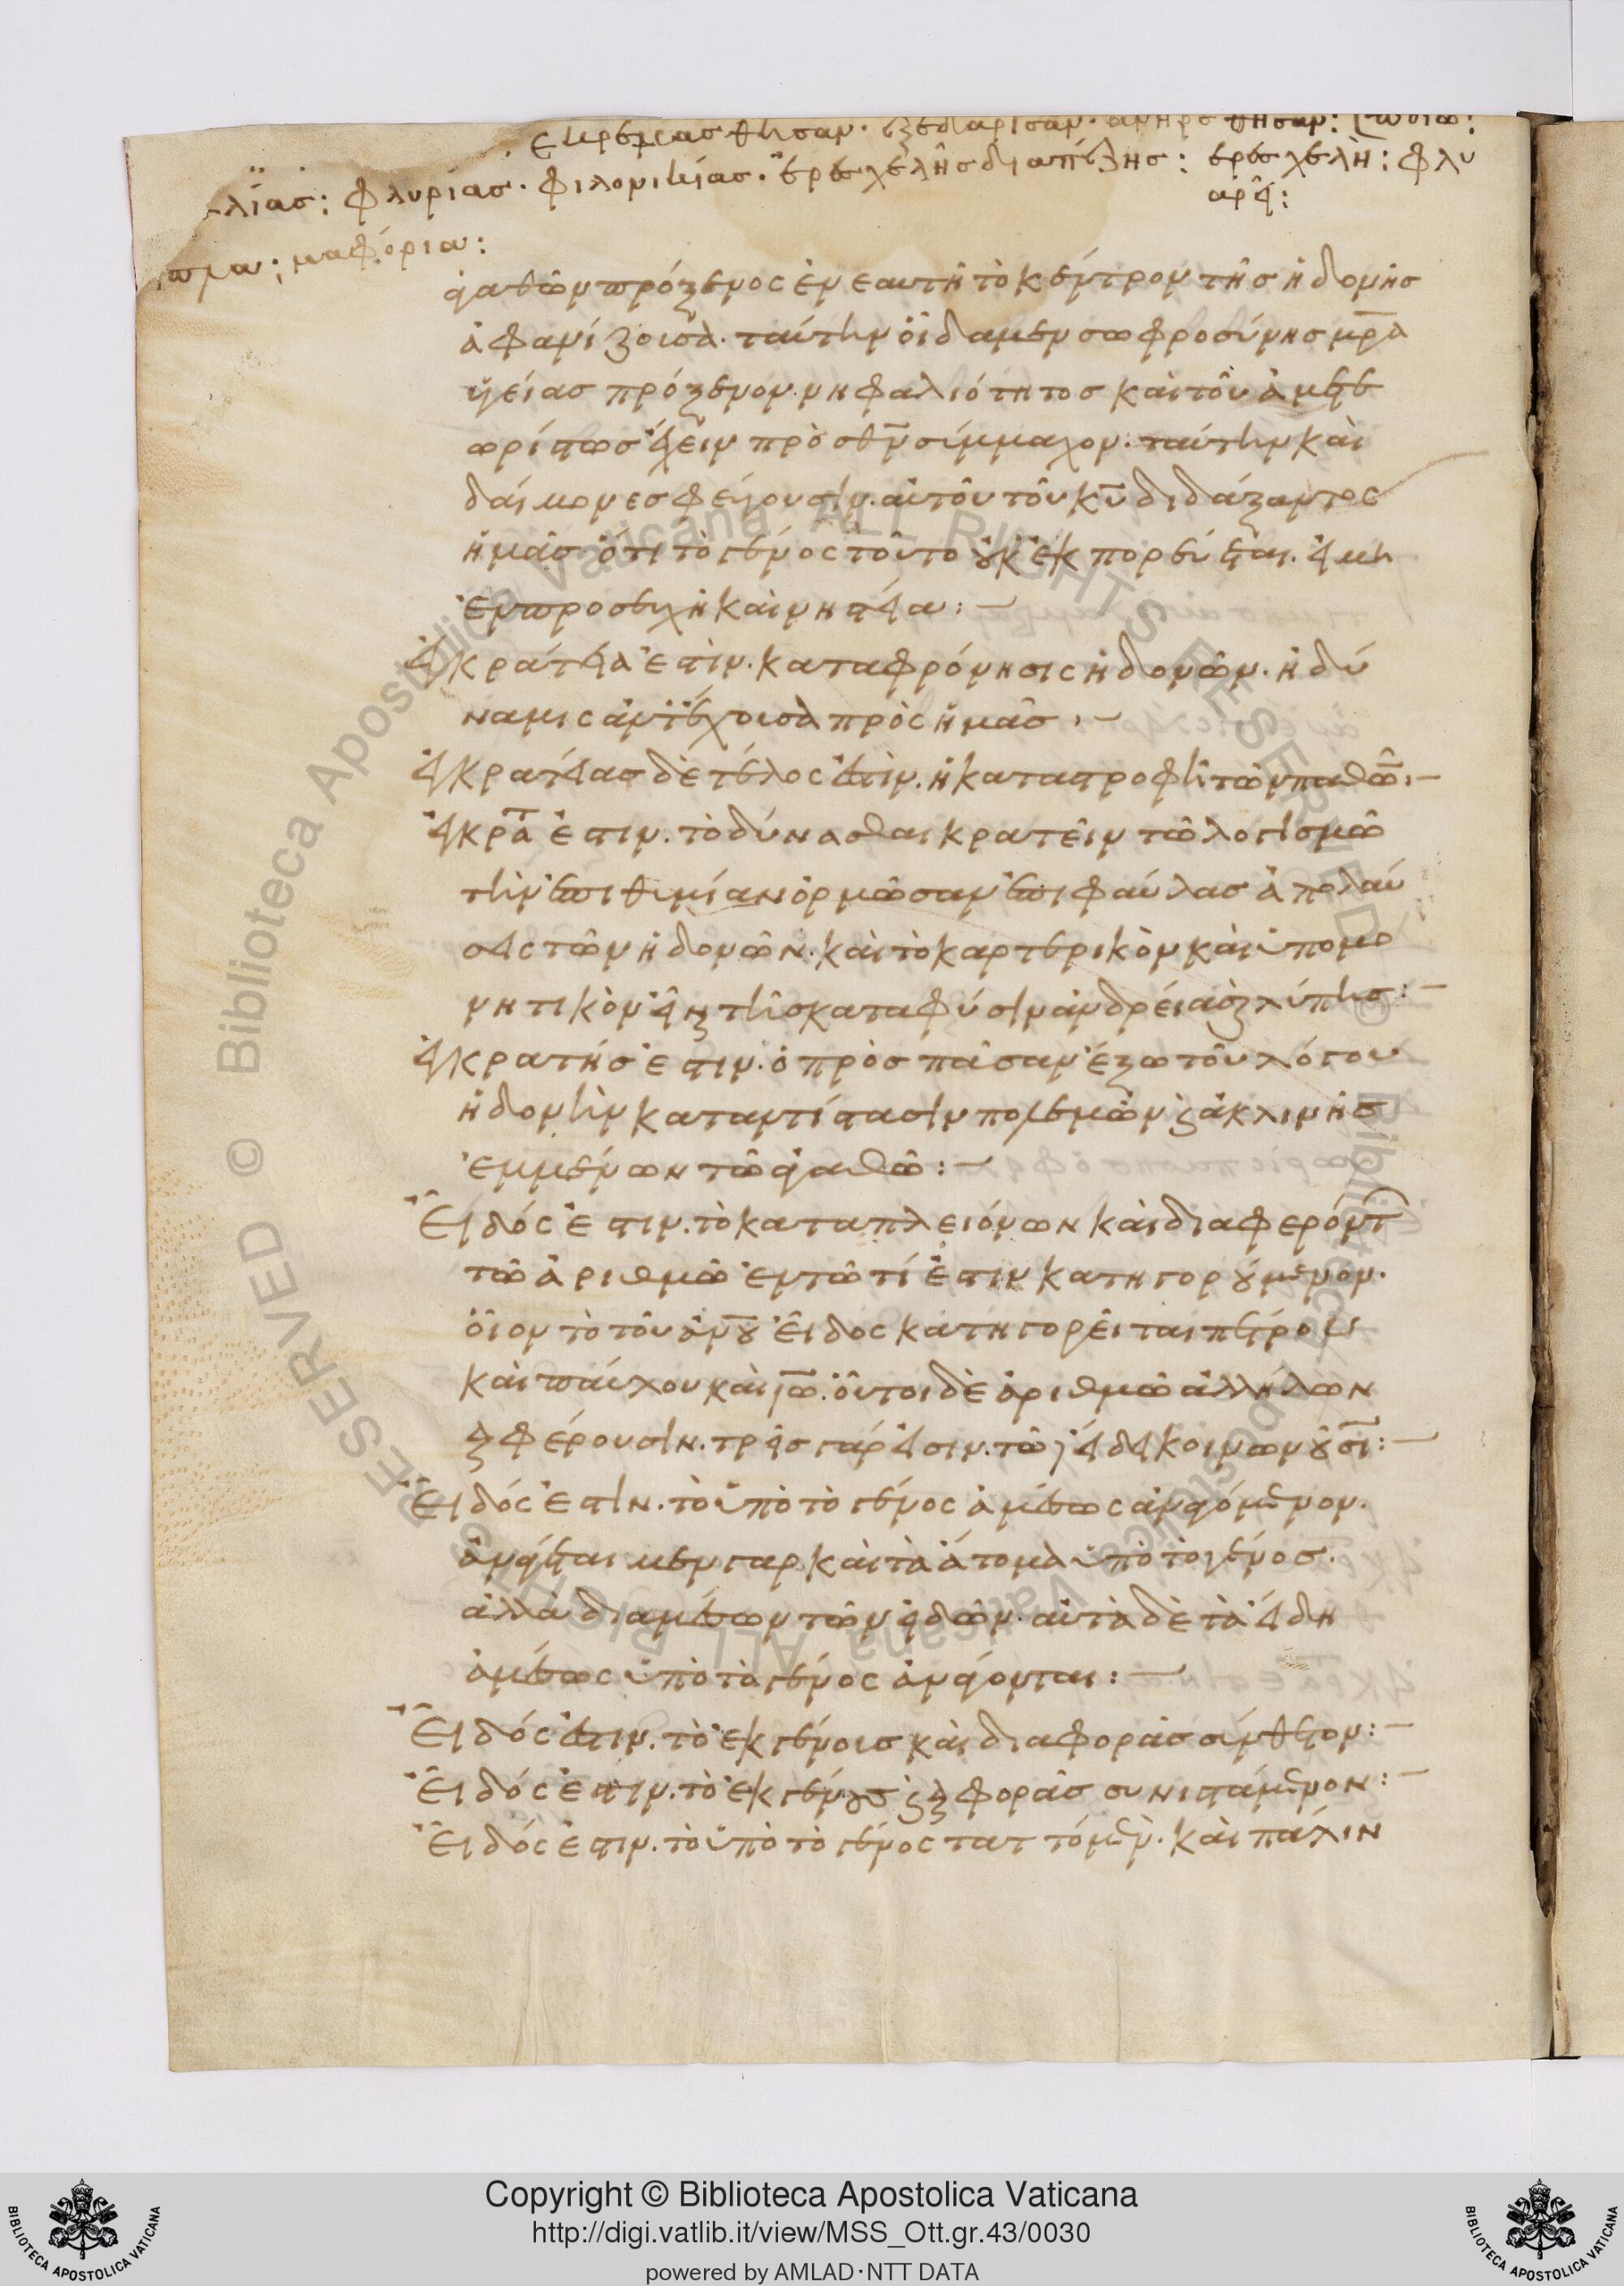 λίας: φλυρίας. φιλονικίας. ἐρεσχελῆς διαπέζης: ἐρεσχελὴ: φλυ
αρεῖ:
μαφόρια:
ἀγαθῶν πρόξενος ἐν ἑαυτῆ τὸ κέντρον τῆς ἡδονῆς
ἀφανίζουσα. ταύτην οἴδαμεν σωφροσύνης μρ̅α
ὑγείας πρόξενον. νηφαλιότητος καὶ τοῦ ἀμετε
ωρίστως ἔχειν πρὸς θν̅ σύμμαχον. ταύτην καὶ
δαίμονες φεύγουσιν. αὐτοῦ τοῦ κυ̅ διδάξαντος
ἡμᾶς ὅτι τὸ γένος τοῦτο οὐκ ἐκπορεύεται. εἰ μὴ
ἐν προσευχῆ καὶ νηστεία:
Ἐγκράτειά ἐστιν. καταφρόνησις ἡδονῶν. ἡ δύ
ναμις ἀντέχουσα πρὸς ἡμᾶς.
Ἐγκρατείας δὲ τέλος ἐστὶν. ἡ καταστροφὴ τῶν παθῶν.
Ἐγκρατ ἐστιν. τὸ δύνασθαι κρατεῖν τῶ λογισμῶ
τὴν ἐπιθυμίαν ὁρμῶσαν ἐπι φαύλας ἀπολαύ
σεις τῶν ἡδονῶν. καὶ τὸ καρτερικὸν καὶ ὑπομο
νητικὸν εἶναι τῆς κατα φύσιν ἀνδρείας καὶ λύπης:
Ἐγκρατής ἐστιν. ὁ πρὸς πᾶσαν ἔξω τοῦ λόγου
ἡδονὴν κατα ἀντίστασιν πολεμῶν καὶ ἀκλινὴς
ἐμμένων τῶ ἀγαθῶ:
Εἶδός ἐστιν. τὸ κατα πλειόνων καὶ διαφερόντ
τῶ ἀριθμῶ ἐν τῶ τί ἐστιν κατηγορούμενον.
οἷον τὸ τοῦ ἀν̅ου εἶδος κατηγορεῖται πέτρου
καὶ παύλου καὶ ἰω̅. οὗτοι δὲ ἀριθμῶ ἀλλήλων
διαφέρουσιν. τρεῖς γάρ εἰσιν. τῶ γ εἴδει κοινωνοῦσι:
Εἶδός ἐστιν. τὸ ὑπὸ τὸ γένος ἀμέσως ἀναγόμενον.
ἀνάγεται μεν γαρ καὶ τὰ ἄτομα ὑπὸ τὸ γένος.
ἀλλὰ δια μέσων τῶν εἰδῶν. αὐτὰ δὲ τὰ εἴδη
ἀμέσως ὑπὸ τὸ γένος ἀνάγονται:
Εἶδός ἐστιν. τὸ ἐκ γένους καὶ διαφορᾶς σύνθετον:
Εἶδός ἐστιν. τὸ ἐκ γένους καὶ διαφορᾶς συνιστάμενον:
Εἶδός ἐστιν. τὸ ὑπὸ τὸ γένος ταττόμενον. καὶ πάλιν
Copyright © Biblioteca Apostolica Vaticana
http://digi.vatlib.it/view/MSS_Ott.gr.43/0030
powered by AMLAD·NTT DATA